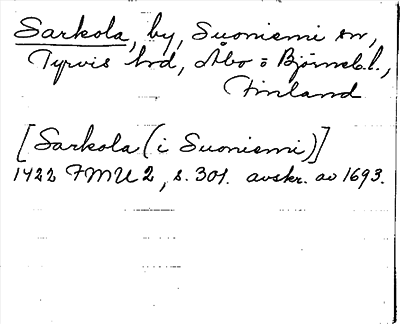 Sarkola, by, Suoniemi sn,
Tyrvis hd, Åbo o Björneb. l.,
Finland
[Sarkola (i Suoniemi)]
1422 FMU 2, s. 301. avskr. av 1693.